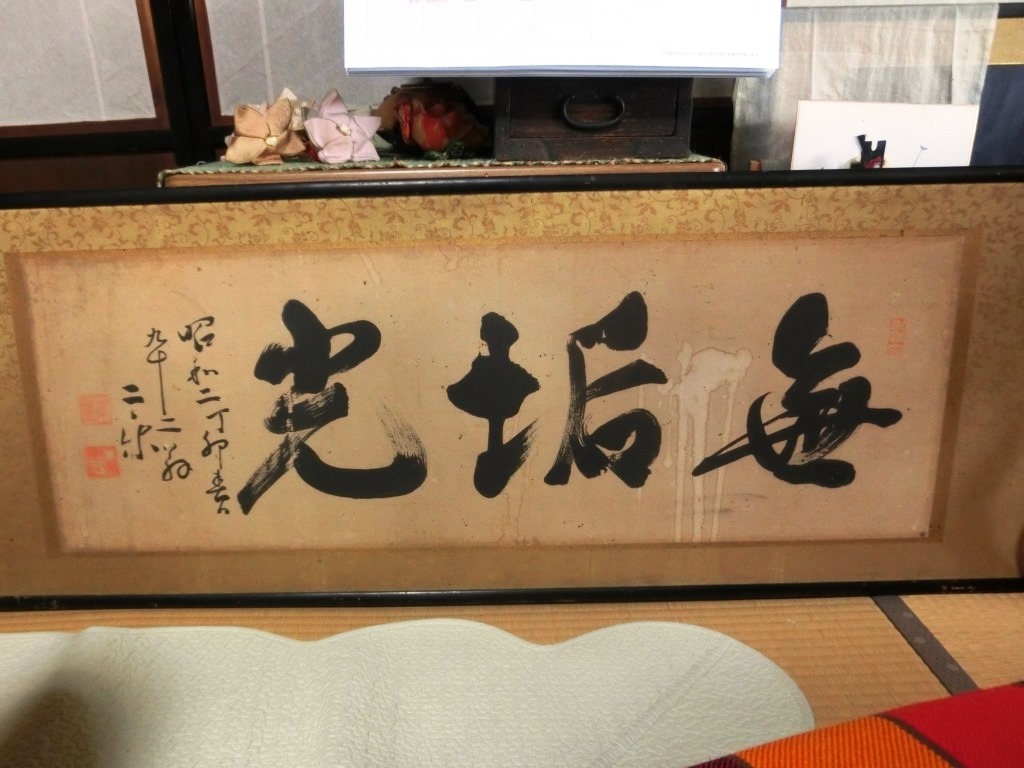 無垢光
昭和二丁卯春
九十二翁